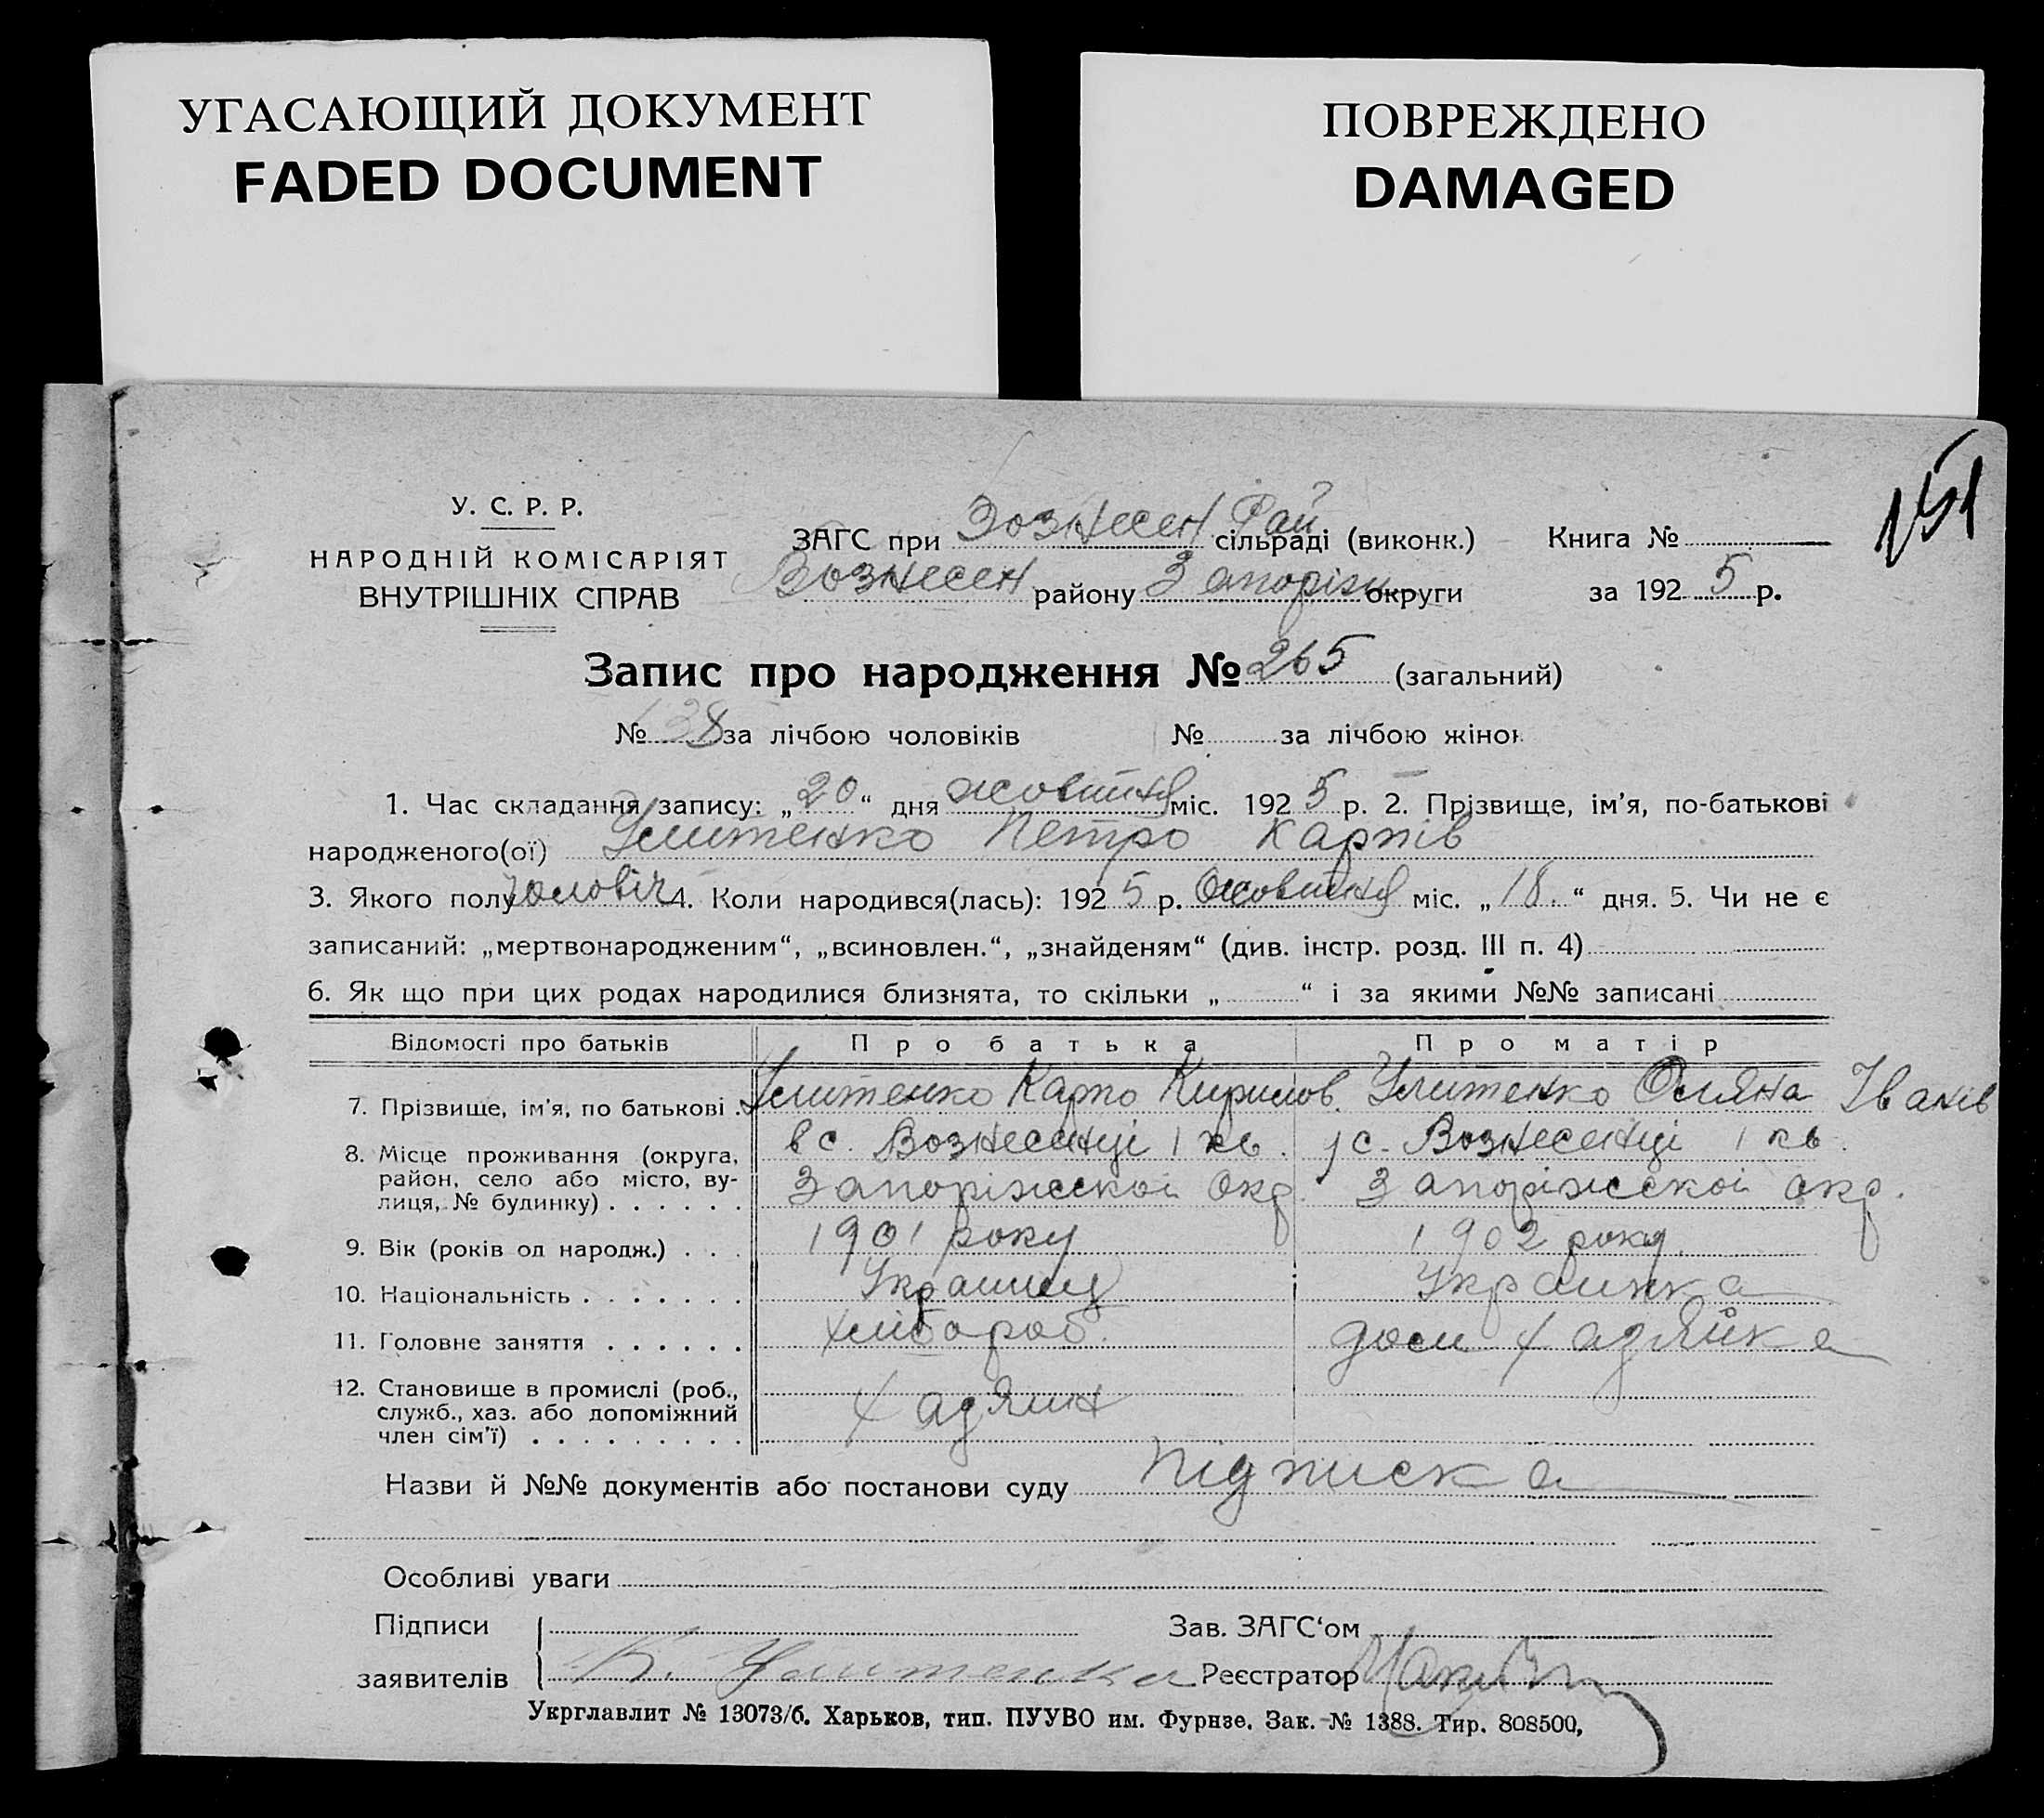 УГАСАЮЩИЙ ДОКУМЕНТ
FADED DOCUMENT
ПОВРЕЖДЕНО
DAMAGED
151
У. С. Р. Р.
НАРОДНІЙ КОМІСАРІЯТ
ВНУТРІШНІХ СПРАВ
ЗАГС при Вознесен Рай сільраді (виконк.) Книга №
Вознесен району Запоріж округи за 1925 р.
Запис про народження № 265 (загальний)
№ 138 за лічбою чоловіків № за лічбою жінок
1. Час складання запису: „20“ дня жовтня міс. 1925 р. 2. Прізвище, ім’я, по-батькові
народженого(ої) Улитенко Петро Карпів
3. Якого полу чоловіч 4. Коли народився(лась): 1925 р. Жовтня міс. „18.“ дня. 5. Чи не є
записаний: „мертвонародженим“, „всиновлен.“, „знайденям“ (див. інстр. розд. III п. 4)
6. Як що при цих родах народилися близнята, то скільки „ “ і за якими №№ записані
Відомості про батьків Про батька Про матір
7. Прізвище, ім’я, по батькові . Улитенко Карпо Кирилов. Улитенко Оляна Іванів
8. Місце проживання (округа, район, село або місто, вулиця, № будинку) . . . . . . в с. Вознесенці 1 кв. Запоріжскоі Окр. у с. Вознесенці 1 кв. Запоріжскоі окр.
9. Вік (років од народж.) . . . 1901 року 1902 року.
10. Національність . . . . . . . Украинец Украинка
11. Головне заняття . . . . . . хлібороб. дом хадяйка
12. Становище в промислі (роб., служб., хаз. або допоміжний член сім’ї) . . . . . . . . . хадяин
Назви й №№ документів або постанови суду підписка
Особливі уваги
Підписи Зав. ЗАГС‘ом
заявителів К. Улитенко Реєстратор
Укрглавлит № 13073/б. Харьков, тип. ПУУВО им. Фрунзе. Зак. № 1388. Тир. 808500,